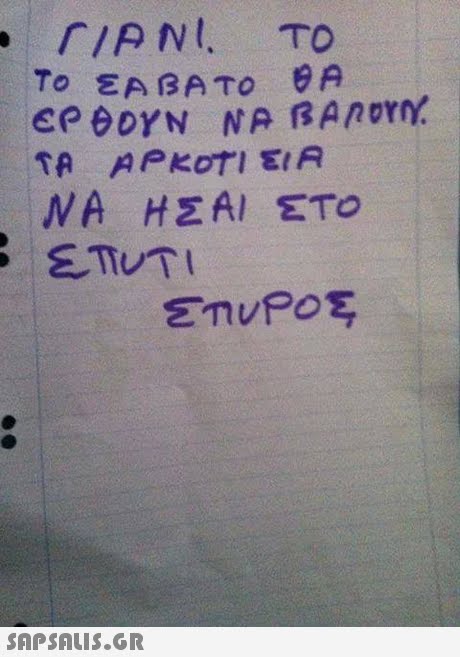 ΓΙΑΝΙ. ΤΟ
ΤΟ ΣΑΒΑΤΟ ΘΑ
ΕΡΘΟΥΝ ΝΑ ΒΑΛΟΥΝ.
ΤΑ ΑΡΚΟΤΙΣΙΑ
ΝΑ ΗΣΑΙ ΣΤΟ
ΣΠΥΤΙ
ΣΠΥΡΟΣ
SAPSALIS.GR